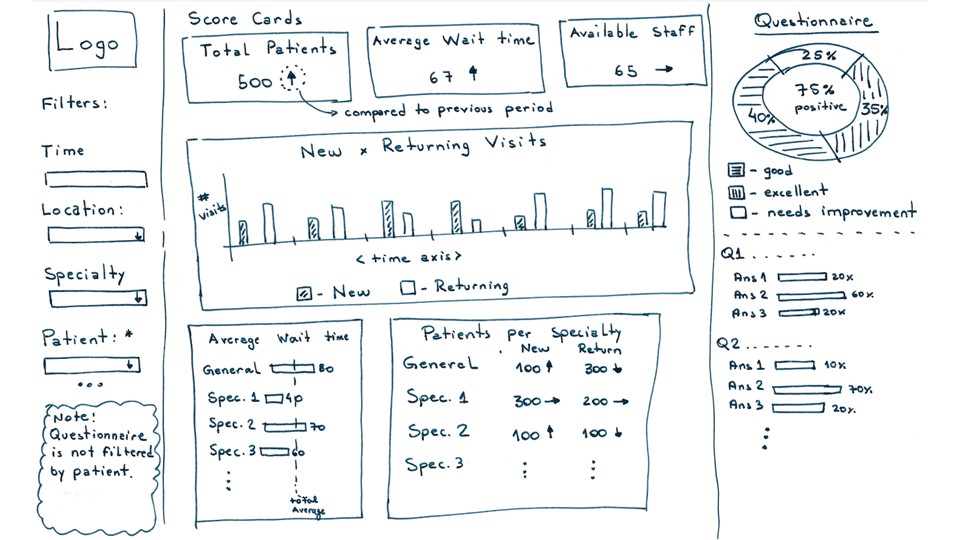 Logo
Filters:
Time
Location:
Specialty
Patient: *
...
Note!
Questionnaire
is not filtered
by patient.
Score Cards
Total Patients
500
Average Wait time
67
Available Staff
65
compared to previous period
New x Returning Visits
# visits
< time axis >
- New
- Returning
Average Wait time
General 80
Spec. 1 4p
Spec. 2 70
Spec. 3 60
total
Average
Patients per Specialty
New Return
General 100 300
Spec. 1 300 200
Spec. 2 100 100
Spec. 3
Questionnaire
25%
75%
positive
40%
35%
- good
- excellent
- needs improvement
Q1 . . . . . .
Ans 1 20%
Ans 2 60%
Ans 3 20%
Q2 . . . . . . .
Ans 1 10%
Ans 2 70%
Ans 3 20%